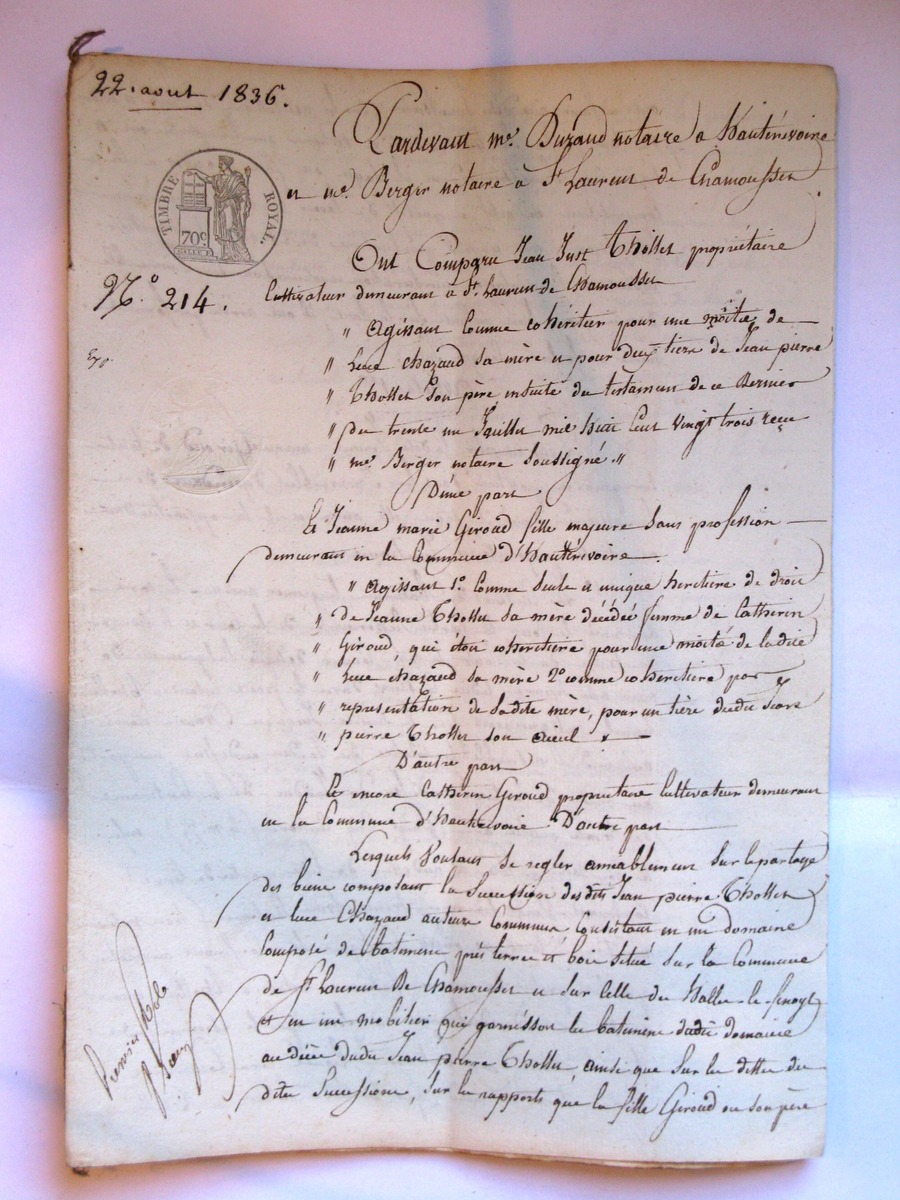 22. aout 1836.
Pardevant me. Durand notaire a hauterivoire
et me. Berger notaire a St Laurent de Chamousset
TIMBRE ROYAL.
70c.
Ont Comparu Jean Just Thollet propriétaire
Cultivateur demeurant a St. Laurent de Chamousset
No. 214.
" agissant Comme cohéritier pour une moitié de
" Luce chazaud sa mère et pour deux tiers de Jean pierre
Exp.
" Thollet Son père ensuite du testament de ce dernier
" du trente un Juillet mil huit Cent vingt trois recu
" me. Berger notaire soussigné "
D'une part
Et Jeanne marie Giroud fille majeure Sans profession
demeurant en la Commune d'hauterivoire
" agissant 1o. Comme Seule et unique héritière de droit
" de Jeanne Thollet sa mère décédée femme de Catherin
" Giroud, qui étoit cohéritière pour une moitié de ladite
" Luce chazaud sa mère 2o comme cohéritière par
" représentation de Sadite mère, pour un tière dudit Jean
" pierre Thollet son aïeul
D'autre part
Et encore Catherin Giroud propriétaire Cultivateur demeurant
en la Commune d'hauterivoire D'autre part
Lesquels Voulant Se régler amiablement Sur le partage
des biens composant la Succession desdits Jean pierre Thollet
et luce Chazaud auteurs Communs Consistant en un domaine
Composé de batimens prés terres et bois situé sur la Commune
de St Laurent De Chamousset et sur Celle du
et en un mobilier qui garnisson le batimens dudit domaine
au décès dudit Jean pierre Thollet, ainsi que Sur les dettes des
dites Successions, Sur les rapports que la fille Giroud ou Son père
premier Rôle